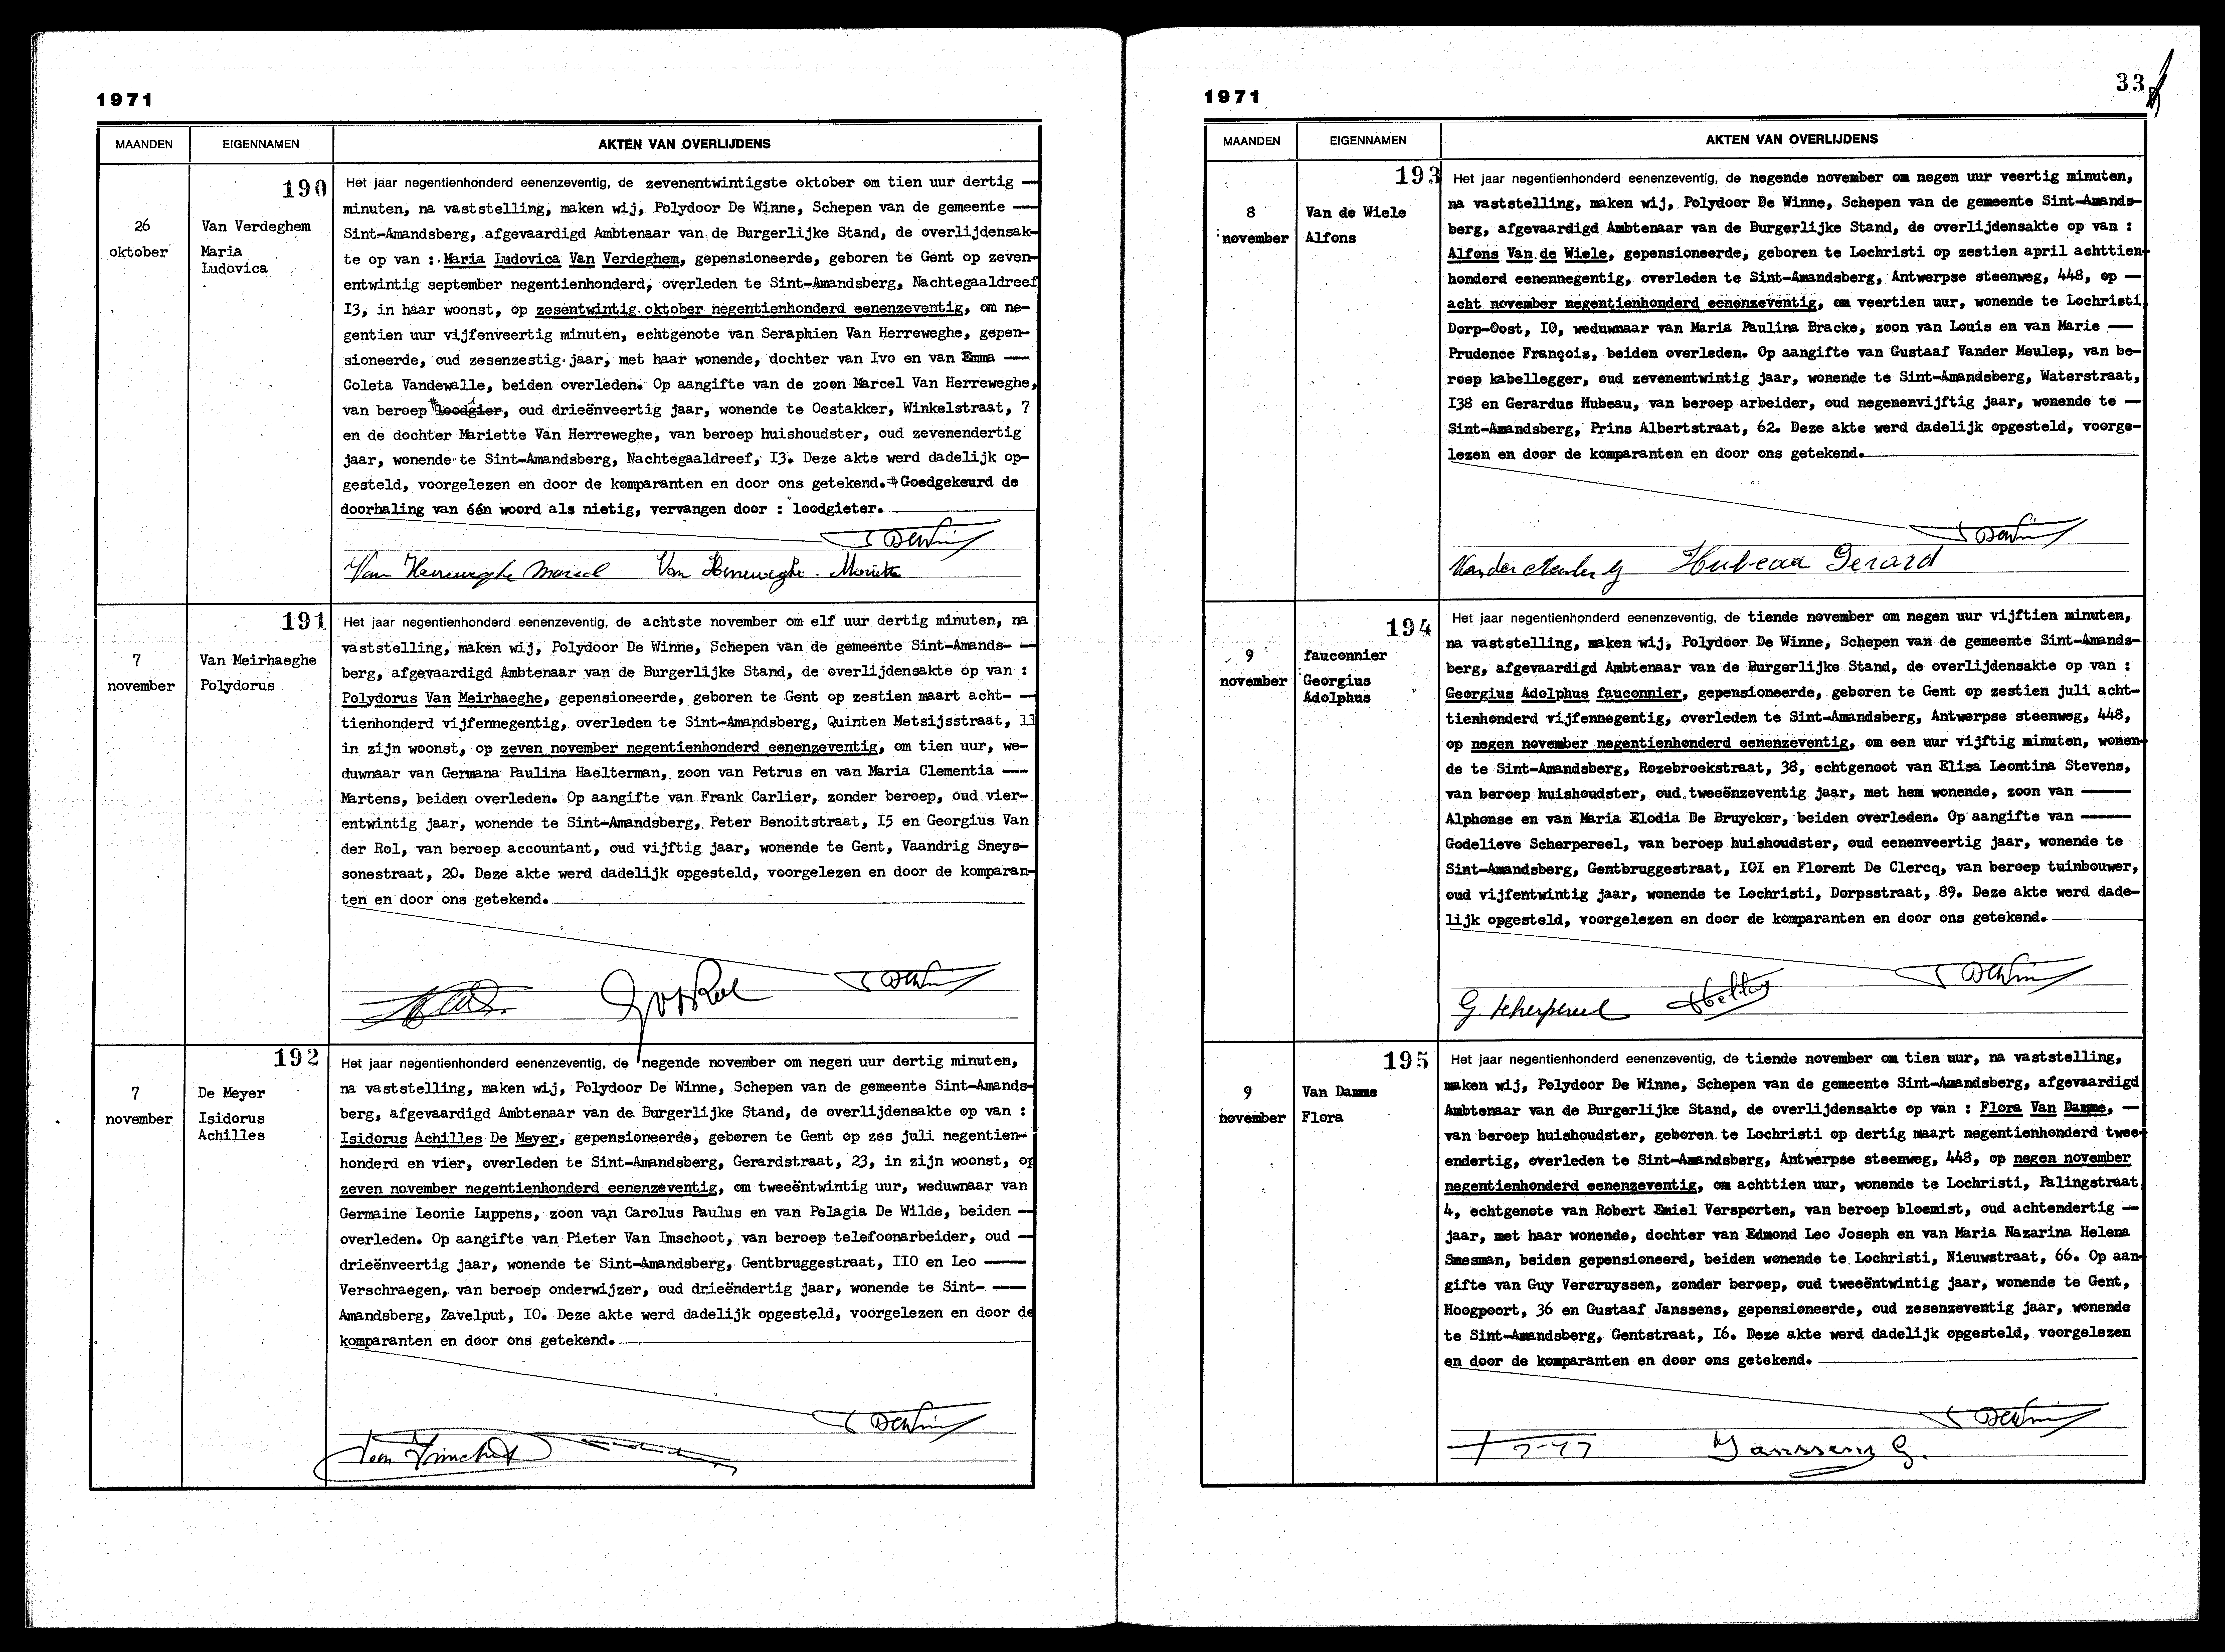 1971
MAANDEN
EIGENNAMEN
AKTEN VAN OVERLIJDENS
190
26
oktober
Van Verdeghem
Maria
Ludovica
Het jaar negentienhonderd eenenzeventig, de zevenentwintigste oktober om tien uur dertig —
minuten, na vaststelling, maken wij, Polydoor De Winne, Schepen van de gemeente —
Sint-Amandsberg, afgevaardigd Ambtenaar van de Burgerlijke Stand, de overlijdensak-
te op van : Maria Ludovica Van Verdeghem, gepensioneerde, geboren te Gent op zeven-
entwintig september negentienhonderd, overleden te Sint-Amandsberg, Nachtegaaldreef
I3, in haar woonst, op zesentwintig oktober negentienhonderd eenenzeventig, om ne-
gentien uur vijfenveertig minuten, echtgenote van Seraphien Van Herreweghe, gepen-
sioneerde, oud zesenzestig jaar, met haar wonende, dochter van Ivo en van Emma —
Coleta Vandewalle, beiden overleden. Op aangifte van de zoon Marcel Van Herreweghe,
van beroep loodgier, oud drieënveertig jaar, wonende te Oostakker, Winkelstraat, 7
en de dochter Mariette Van Herreweghe, van beroep huishoudster, oud zevenendertig
jaar, wonende te Sint-Amandsberg, Nachtegaaldreef, I3. Deze akte werd dadelijk op-
gesteld, voorgelezen en door de komparanten en door ons getekend. Goedgekeurd de
doorhaling van één woord als nietig, vervangen door : loodgieter.
Van Herreweghe Marcel Van Herreweghe Mariette
191
7
november
Van Meirhaeghe
Polydorus
Het jaar negentienhonderd eenenzeventig, de achtste november om elf uur dertig minuten, na
vaststelling, maken wij, Polydoor De Winne, Schepen van de gemeente Sint-Amands- —
berg, afgevaardigd Ambtenaar van de Burgerlijke Stand, de overlijdensakte op van :
Polydorus Van Meirhaeghe, gepensioneerde, geboren te Gent op zestien maart acht- —
tienhonderd vijfennegentig, overleden te Sint-Amandsberg, Quinten Metsijsstraat, 11
in zijn woonst, op zeven november negentienhonderd eenenzeventig, om tien uur, we-
duwnaar van Germana Paulina Haelterman, zoon van Petrus en van Maria Clementia —
Martens, beiden overleden. Op aangifte van Frank Carlier, zonder beroep, oud vier-
entwintig jaar, wonende te Sint-Amandsberg, Peter Benoitstraat, I5 en Georgius Van
der Rol, van beroep accountant, oud vijftig jaar, wonende te Gent, Vaandrig Sneys-
sonestraat, 20. Deze akte werd dadelijk opgesteld, voorgelezen en door de komparan-
ten en door ons getekend.
192
7
november
De Meyer
Isidorus
Achilles
Het jaar negentienhonderd eenenzeventig, de negende november om negen uur dertig minuten,
na vaststelling, maken wij, Polydoor De Winne, Schepen van de gemeente Sint-Amands-
berg, afgevaardigd Ambtenaar van de Burgerlijke Stand, de overlijdensakte op van :
Isidorus Achilles De Meyer, gepensioneerde, geboren te Gent op zes juli negentien-
honderd en vier, overleden te Sint-Amandsberg, Gerardstraat, 23, in zijn woonst, op
zeven november negentienhonderd eenenzeventig, om tweeëntwintig uur, weduwnaar van
Germaine Leonie Luppens, zoon van Carolus Paulus en van Pelagia De Wilde, beiden —
overleden. Op aangifte van Pieter Van Imschoot, van beroep telefoonarbeider, oud —
drieënveertig jaar, wonende te Sint-Amandsberg, Gentbruggestraat, II0 en Leo —
Verschraegen, van beroep onderwijzer, oud drieëndertig jaar, wonende te Sint- —
Amandsberg, Zavelput, I0. Deze akte werd dadelijk opgesteld, voorgelezen en door de
komparanten en door ons getekend.
33
1971
MAANDEN
EIGENNAMEN
AKTEN VAN OVERLIJDENS
193
8
november
Van de Wiele
Alfons
Het jaar negentienhonderd eenenzeventig, de negende november om negen uur veertig minuten,
na vaststelling, maken wij, Polydoor De Winne, Schepen van de gemeente Sint-Amands-
berg, afgevaardigd Ambtenaar van de Burgerlijke Stand, de overlijdensakte op van :
Alfons Van de Wiele, gepensioneerde, geboren te Lochristi op zestien april achttien-
honderd eenennegentig, overleden te Sint-Amandsberg, Antwerpse steenweg, 448, op —
acht november negentienhonderd eenenzeventig, om veertien uur, wonende te Lochristi
Dorp-Oost, I0, weduwnaar van Maria Paulina Bracke, zoon van Louis en van Marie —
Prudence François, beiden overleden. Op aangifte van Gustaaf Vander Meulen, van be-
roep kabellegger, oud zevenentwintig jaar, wonende te Sint-Amandsberg, Waterstraat,
I38 en Gerardus Hubeau, van beroep arbeider, oud negenenvijftig jaar, wonende te —
Sint-Amandsberg, Prins Albertstraat, 62. Deze akte werd dadelijk opgesteld, voorge-
lezen en door de komparanten en door ons getekend.
Hubeau Gerard
194
9
november
fauconnier
Georgius
Adolphus
Het jaar negentienhonderd eenenzeventig, de tiende november om negen uur vijftien minuten,
na vaststelling, maken wij, Polydoor De Winne, Schepen van de gemeente Sint-Amands-
berg, afgevaardigd Ambtenaar van de Burgerlijke Stand, de overlijdensakte op van :
Georgius Adolphus fauconnier, gepensioneerde, geboren te Gent op zestien juli acht-
tienhonderd vijfennegentig, overleden te Sint-Amandsberg, Antwerpse steenweg, 448,
op negen november negentienhonderd eenenzeventig, om een uur vijftig minuten, wonen-
de te Sint-Amandsberg, Rozebroekstraat, 38, echtgenoot van Elisa Leontina Stevens,
van beroep huishoudster, oud tweeënzeventig jaar, met hem wonende, zoon van —
Alphonse en van Maria Elodia De Bruycker, beiden overleden. Op aangifte van —
Godelieve Scherpereel, van beroep huishoudster, oud eenenveertig jaar, wonende te
Sint-Amandsberg, Gentbruggestraat, I0I en Florent De Clercq, van beroep tuinbouwer,
oud vijfentwintig jaar, wonende te Lochristi, Dorpsstraat, 89. Deze akte werd dade-
lijk opgesteld, voorgelezen en door de komparanten en door ons getekend.
G. Scherpereel
195
9
november
Van Damme
Flora
Het jaar negentienhonderd eenenzeventig, de tiende november om tien uur, na vaststelling,
maken wij, Polydoor De Winne, Schepen van de gemeente Sint-Amandsberg, afgevaardigd
Ambtenaar van de Burgerlijke Stand, de overlijdensakte op van : Flora Van Damme, —
van beroep huishoudster, geboren te Lochristi op dertig maart negentienhonderd twee-
endertig, overleden te Sint-Amandsberg, Antwerpse steenweg, 448, op negen november
negentienhonderd eenenzeventig, om achttien uur, wonende te Lochristi, Palingstraat
4, echtgenote van Robert Emiel Versporten, van beroep bloemist, oud achtendertig —
jaar, met haar wonende, dochter van Edmond Leo Joseph en van Maria Nazarina Helena
Smesman, beiden gepensioneerd, beiden wonende te Lochristi, Nieuwstraat, 66. Op aan-
gifte van Guy Vercruyssen, zonder beroep, oud tweeëntwintig jaar, wonende te Gent,
Hoogpoort, 36 en Gustaaf Janssens, gepensioneerde, oud zesenzeventig jaar, wonende
te Sint-Amandsberg, Gentstraat, I6. Deze akte werd dadelijk opgesteld, voorgelezen
en door de komparanten en door ons getekend.
Janssens G.